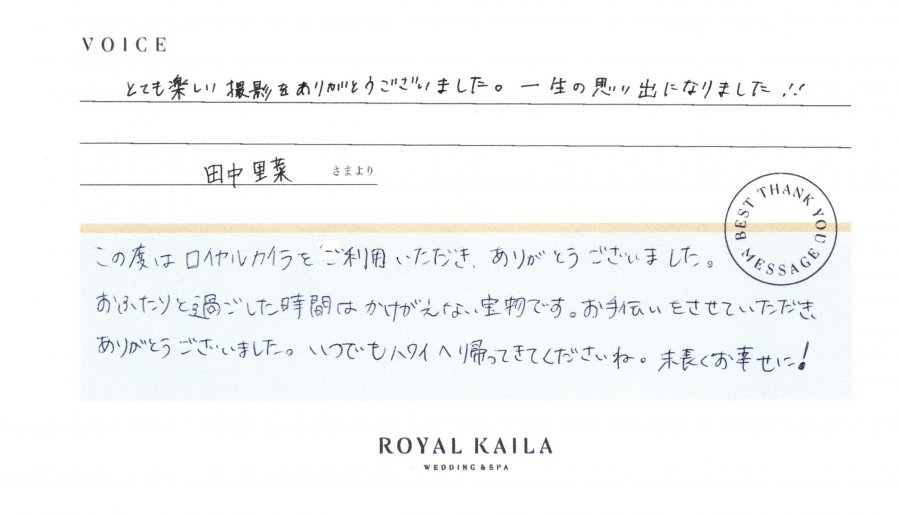 VOICE
とても楽しい撮影をありがとうございました。一生の思い出になりました!!
田中里菜 さまより
BEST THANK YOU MESSAGE
この度はロイヤルカイラをご利用いただき、ありがとうございました。
おふたりと過ごした時間はかけがえない宝物です。お手伝いをさせていただき、
ありがとうございました。いつでもハワイへ帰ってきてくださいね。末長くお幸せに!
ROYAL KAILA
WEDDING & SPA